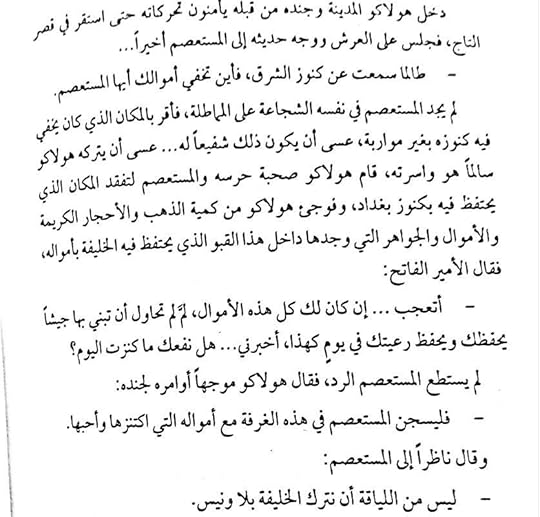 دخل هولاكو المدينة وجنده من قبله يأمنون تحركاته حتى استقر في قصر
التاج، فجلس على العرش ووجه حديثه إلى المستعصم أخيراً...
- طالما سمعت عن كنوز الشرق، فأين تخفي أموالك أيها المستعصم.
لم يجد المستعصم في نفسه الشجاعة على المماطلة، فأقر بالمكان الذي كان يخفي
فيه كنوزه بغير مواربة، عسى أن يكون ذلك شفيعاً له... عسى أن يتركه هولاكو
سالماً هو واسرته، قام هولاكو صحبة حرسه والمستعصم لتفقد المكان الذي
يحتفظ فيه بكنوز بغداد، وفوجئ هولاكو من كمية الذهب والأحجار الكريمة
والأموال والجواهر التي وجدها داخل هذا القبو الذي يحتفظ فيه الخليفة بأمواله،
فقال الأمير الفاتح:
- أتعجب ... إن كان لك كل هذه الأموال، لمَ لم تحاول أن تبني بها جيشاً
يحفظك ويحفظ رعيتك في يومٍ كهذا، أخبرني... هل نفعك ما كنزت اليوم؟
لم يستطع المستعصم الرد، فقال هولاكو موجهاً أوامره لجنده:
- فليسجن المستعصم في هذه الغرفة مع أمواله التي اكتنزها وأحبها.
وقال ناظراً إلى المستعصم:
- ليس من اللياقة أن نترك الخليفة بلا ونيس.